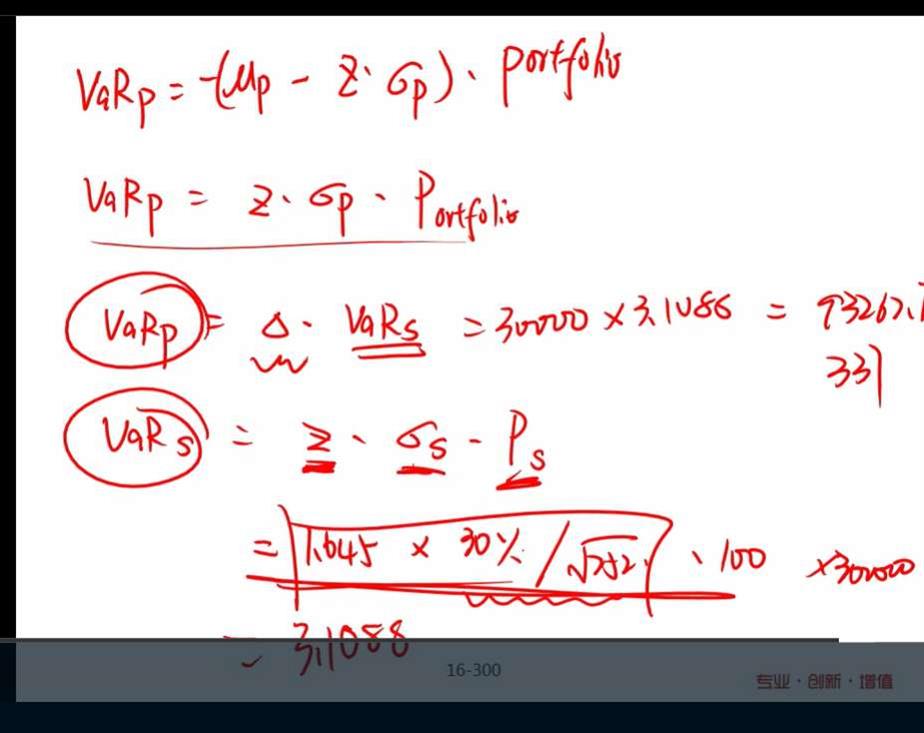 VaRp = -(μp - z·σp)· portfolio
VaRp = z·σp· Portfolio
VaRp = Δ· VaRs = 30000 × 3.1086 = 93262.
331
VaRs = z · σs - Ps
= 1.645 × 30% / √252 · 100 × 30000
= 3.1088
16-300
专业·创新·增值